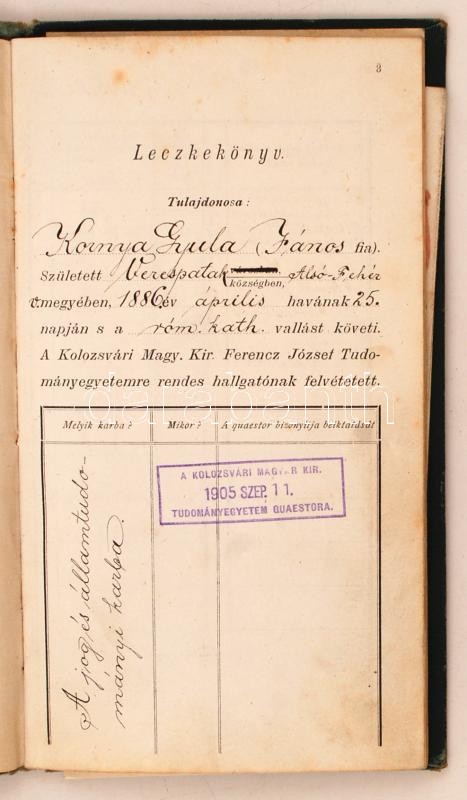 3
Leczkekönyv.
Tulajdonosa:
Kornya Gyula (János fia).
Született Verespatak községben, Alsó-Fehér
v.megyében, 1886 év április havának 25.
napján s a róm. kath. vallást követi.
A Kolozsvári Magy. Kir. Ferencz József Tudo-
mányegyetemre rendes hallgatónak felvétetett.
Melyik karba? Mikor? A quaestor bizonyítja beiktatását
A KOLOZSVÁRI MAGYAR KIR.
1905 SZEP. 11.
TUDOMÁNYEGYETEM QUAESTORA.
A jog és államtudo-
mányi karba.
darabanth